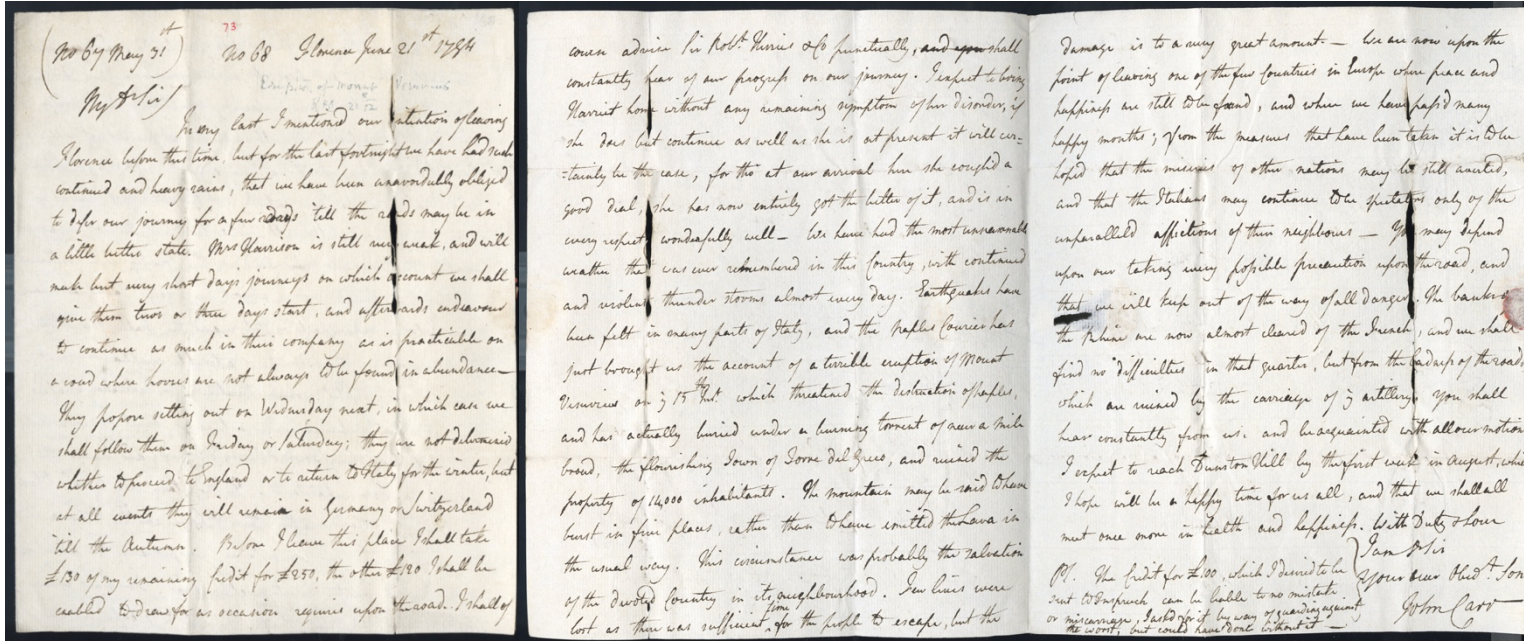 (No 67 May 31st)
73
No 68 Florence June 21st 1794
Eruption of Mount Vesuvius
My Dr Sir/
In my last I mentioned our intention of leaving
Florence before this time, but for the last fortnight we have had such
continued and heavy rains, that we have been unavoidably obliged
to defer our journey for a few days 'till the roads may be in
a little better state. Mrs Harrison is still very weak, and will
make but very short days journeys on which account we shall
give them two or three days start, and afterwards endeavour
to continue as much in their company as is practicable on
a road where horses are not always to be found in abundance—
They propose setting out on Wednesday next, in which case we
shall follow them on Friday or Saturday; they are not determined
whether to proceed to England or to return to Italy for the winter, but
at all events they will remain in Germany or Switzerland
'till the Autumn. Before I leave this place I shall take
£130 of my remaining Credit for £250, the other £120 I shall be
enabled to draw for as occasion requires upon the road. I shall of
course advise Sir Robt Herries & Co punctually, and you shall
constantly hear of our progress on our journey. I expect to bring
Harriet home without any remaining symptom of her disorder, if
she does but continue as well as she is at present it will cer=
=tainly be the case, for tho at our arrival here she coughed a
good deal, she has now entirely got the better of it, and is in
every respect wonderfully well— We have had the most unseasonable
weather that was ever remembered in this Country, with continued
and violent thunder storms almost every day. Earthquakes have
been felt in many parts of Italy, and the Naples Courier has
just brought us the account of a terrible eruption of Mount
Vesuvius on ye 15th Inst. which threatened the destruction of Naples,
and has actually buried under a burning torrent of near a mile
broad, the flourishing Town of Torre del Greco, and ruined the
property of 14,000 inhabitants. The mountain may be said to have
burst in five places, rather than to have emitted the Lava in
the usual way. This circumstance was probably the salvation
of the devoted Country in its neighbourhood. Few lives were
lost as there was sufficient time for the people to escape, but the
damage is to a very great amount.— We are now upon the
point of leaving one of the few Countries in Europe where peace and
happiness are still to be found, and where we have pass'd many
happy months; from the measures that have been taken it is to be
hoped that the miseries of other nations may be still averted,
and that the Italians may continue to be spectators only of the
unparalleled afflictions of their neighbours— You may depend
upon our taking every possible precaution upon the road, and
that we will keep out of the way of all danger. The banks of
the Rhine are now almost cleared of the French, and we shall
find no difficulties in that quarter, but from the badness of the roads
which are ruined by the carriage of ye artillery. You shall
hear constantly from us. and be acquainted with all our motions
I expect to reach Dunston Hill by the first week in August, which
I hope will be a happy time for us all, and that we shall all
meet once more in health and happiness. With Duty & Love
I am Dr Sir
Your ever Obedt Son
John Carr
PS. The Credit for £100, which I desired to be
sent to Inspruch can be liable to no mistake
or miscarriage, I asked for it by way of guarding against
the worst, but could have done without it—